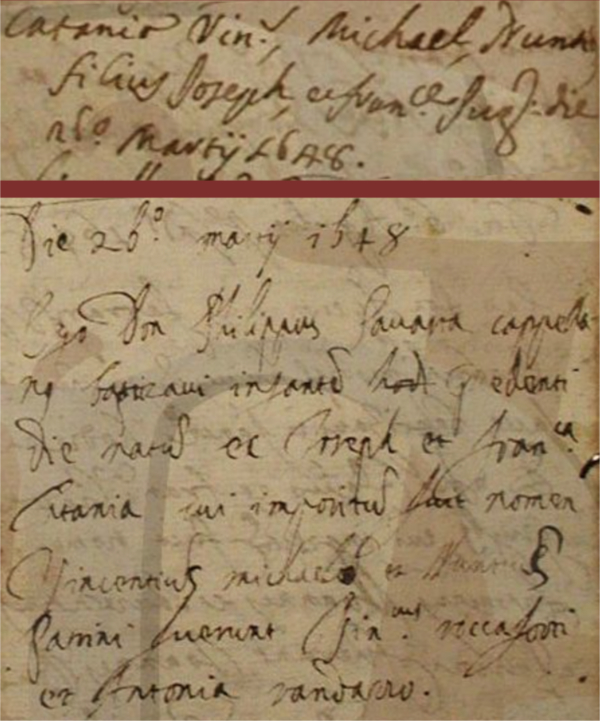 Catanio Vin.s, Michael, Nunti,
filius Joseph, et fran.ce Jug: die
26.o Martij 1648.
Die 26.o martij 1648
Ego Don Philippus Navarra cappella-
ng baptizavi infantē hodi p edenti
die natū ex Joseph et fran.ca
Catania cui impositū fuit nomen
Vincentius michael et Nuntius
Patrini fuerunt Vin.us roccaforti
et Antonia randazzo.